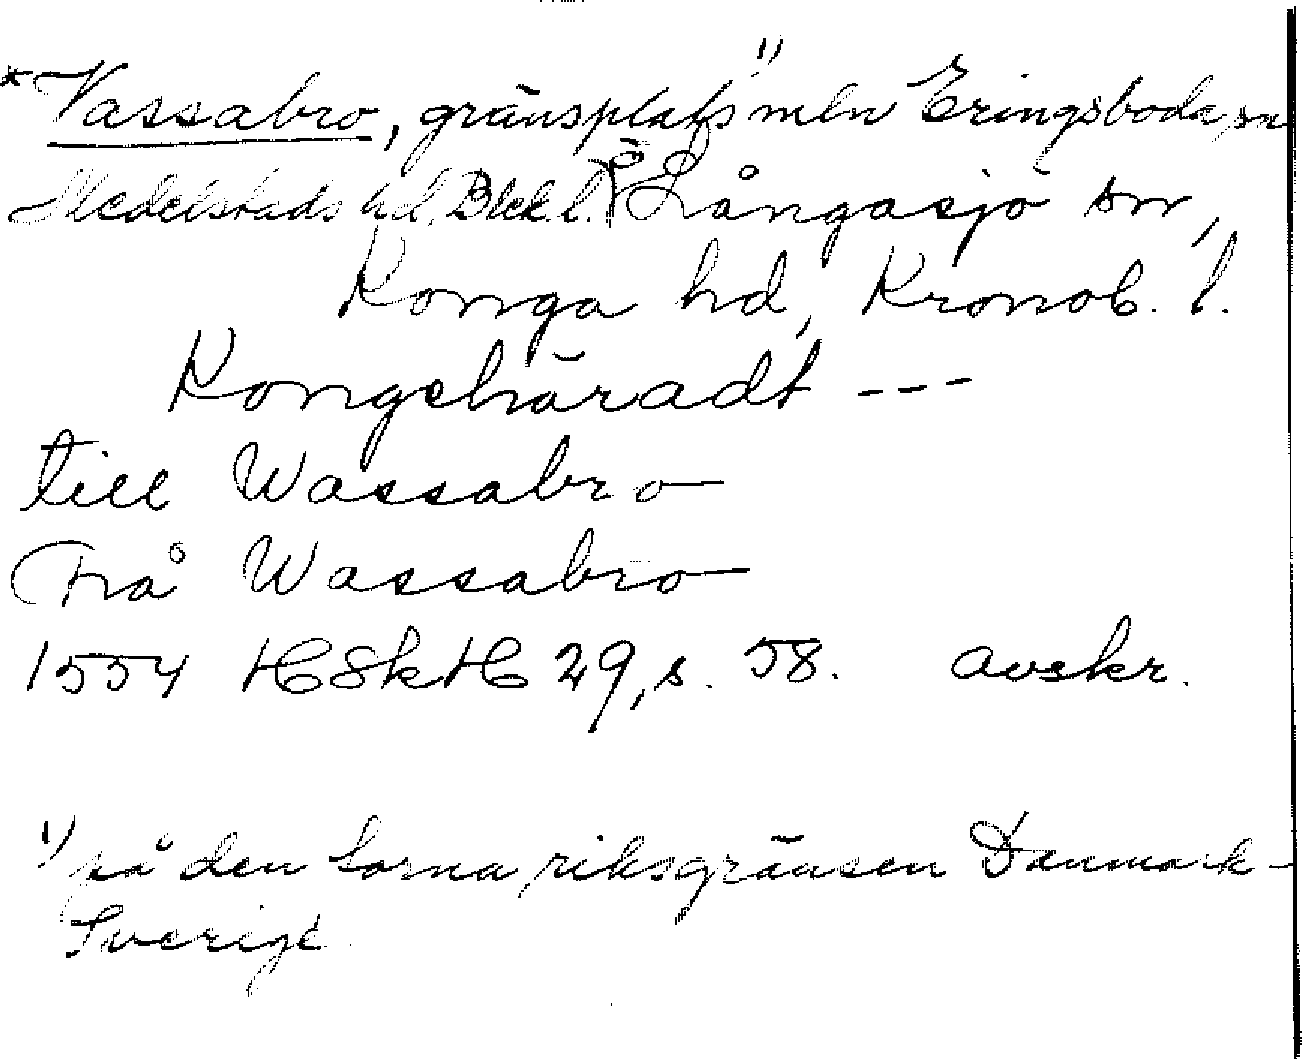 *Vassabro, gränsplats 1) mln Eringsboda sn
Medelstads hd, Blek. l. o Långasjö sn,
Konga hd, Kronob. l.
Kongehäradt ---
till Wassabro
Frå Wassabro
1554 HSkH 29, s. 58. avskr.
1) på den forna riksgränsen Danmark-
Sverige